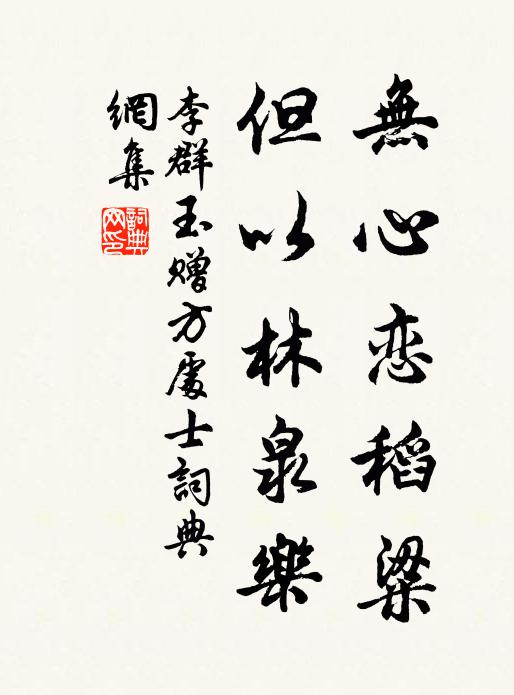 無心恋稻粱
但以林泉樂
李群玉贈方處士詞典
網集
詞典
网印